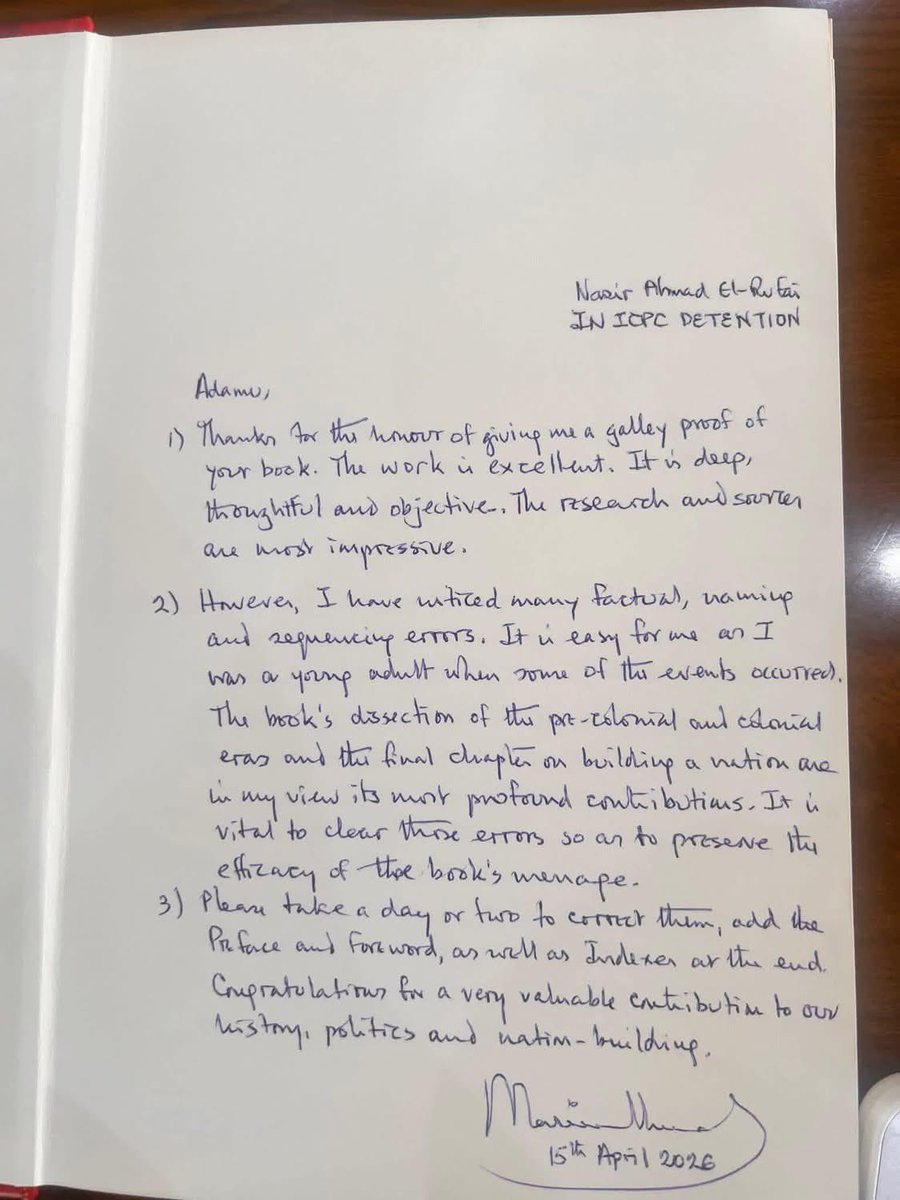 Nasir Ahmad El-Rufai
IN ICPC DETENTION
Adamu,
1) Thanks for the honour of giving me a galley proof of
your book. The work is excellent. It is deep,
thoughtful and objective. The research and sources
are most impressive.
2) However, I have noticed many factual, naming
and sequencing errors. It is easy for me as I
was a young adult when some of the events occurred.
The book's dissection of the pre-colonial and colonial
eras and the final chapter on building a nation are
in my view its most profound contributions. It is
vital to clear these errors so as to preserve the
efficacy of the book's message.
3) Please take a day or two to correct them, add the
Preface and Foreword, as well as Indexes at the end.
Congratulations for a very valuable contribution to our
history, politics and nation-building.
15th April 2026